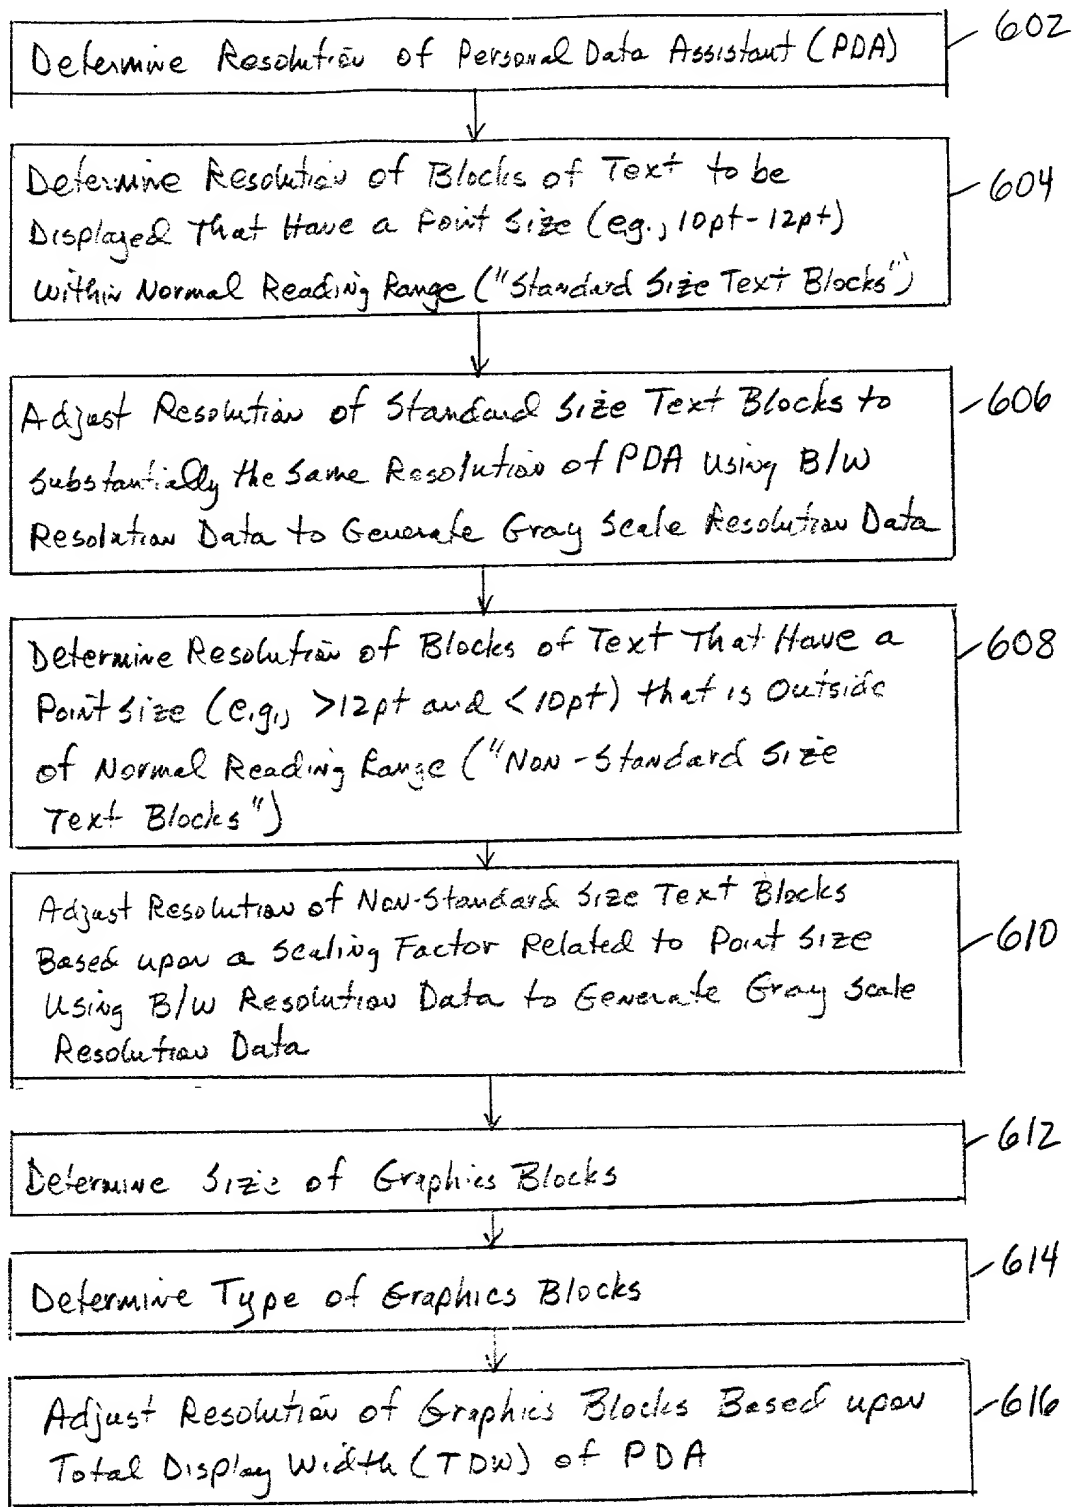 Determine Resolution of Personal Data Assistant (PDA)
602
Determine Resolution of Blocks of Text to be
Displayed That Have a Point Size (e.g., 10pt-12pt)
Within Normal Reading Range ("Standard Size Text Blocks")
604
Adjust Resolution of Standard Size Text Blocks to
Substantially the Same Resolution of PDA Using B/W
Resolution Data to Generate Gray Scale Resolution Data
606
Determine Resolution of Blocks of Text That Have a
Point Size (e.g., >12pt and <10pt) that is Outside
of Normal Reading Range ("Non-Standard Size
Text Blocks")
608
Adjust Resolution of Non-Standard Size Text Blocks
Based upon a Scaling Factor Related to Point Size
Using B/W Resolution Data to Generate Gray Scale
Resolution Data
610
Determine Size of Graphics Blocks
612
Determine Type of Graphics Blocks
614
Adjust Resolution of Graphics Blocks Based upon
Total Display Width (TDW) of PDA
616